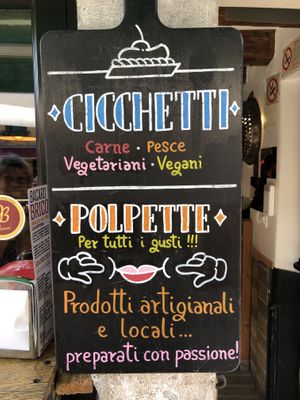 CICCHETTI
Carne · Pesce
Vegetariani · Vegani
POLPETTE
Per tutti i gusti !!!
Prodotti artigianali
e locali...
preparati con passione!
BACARO
BRIGO
B